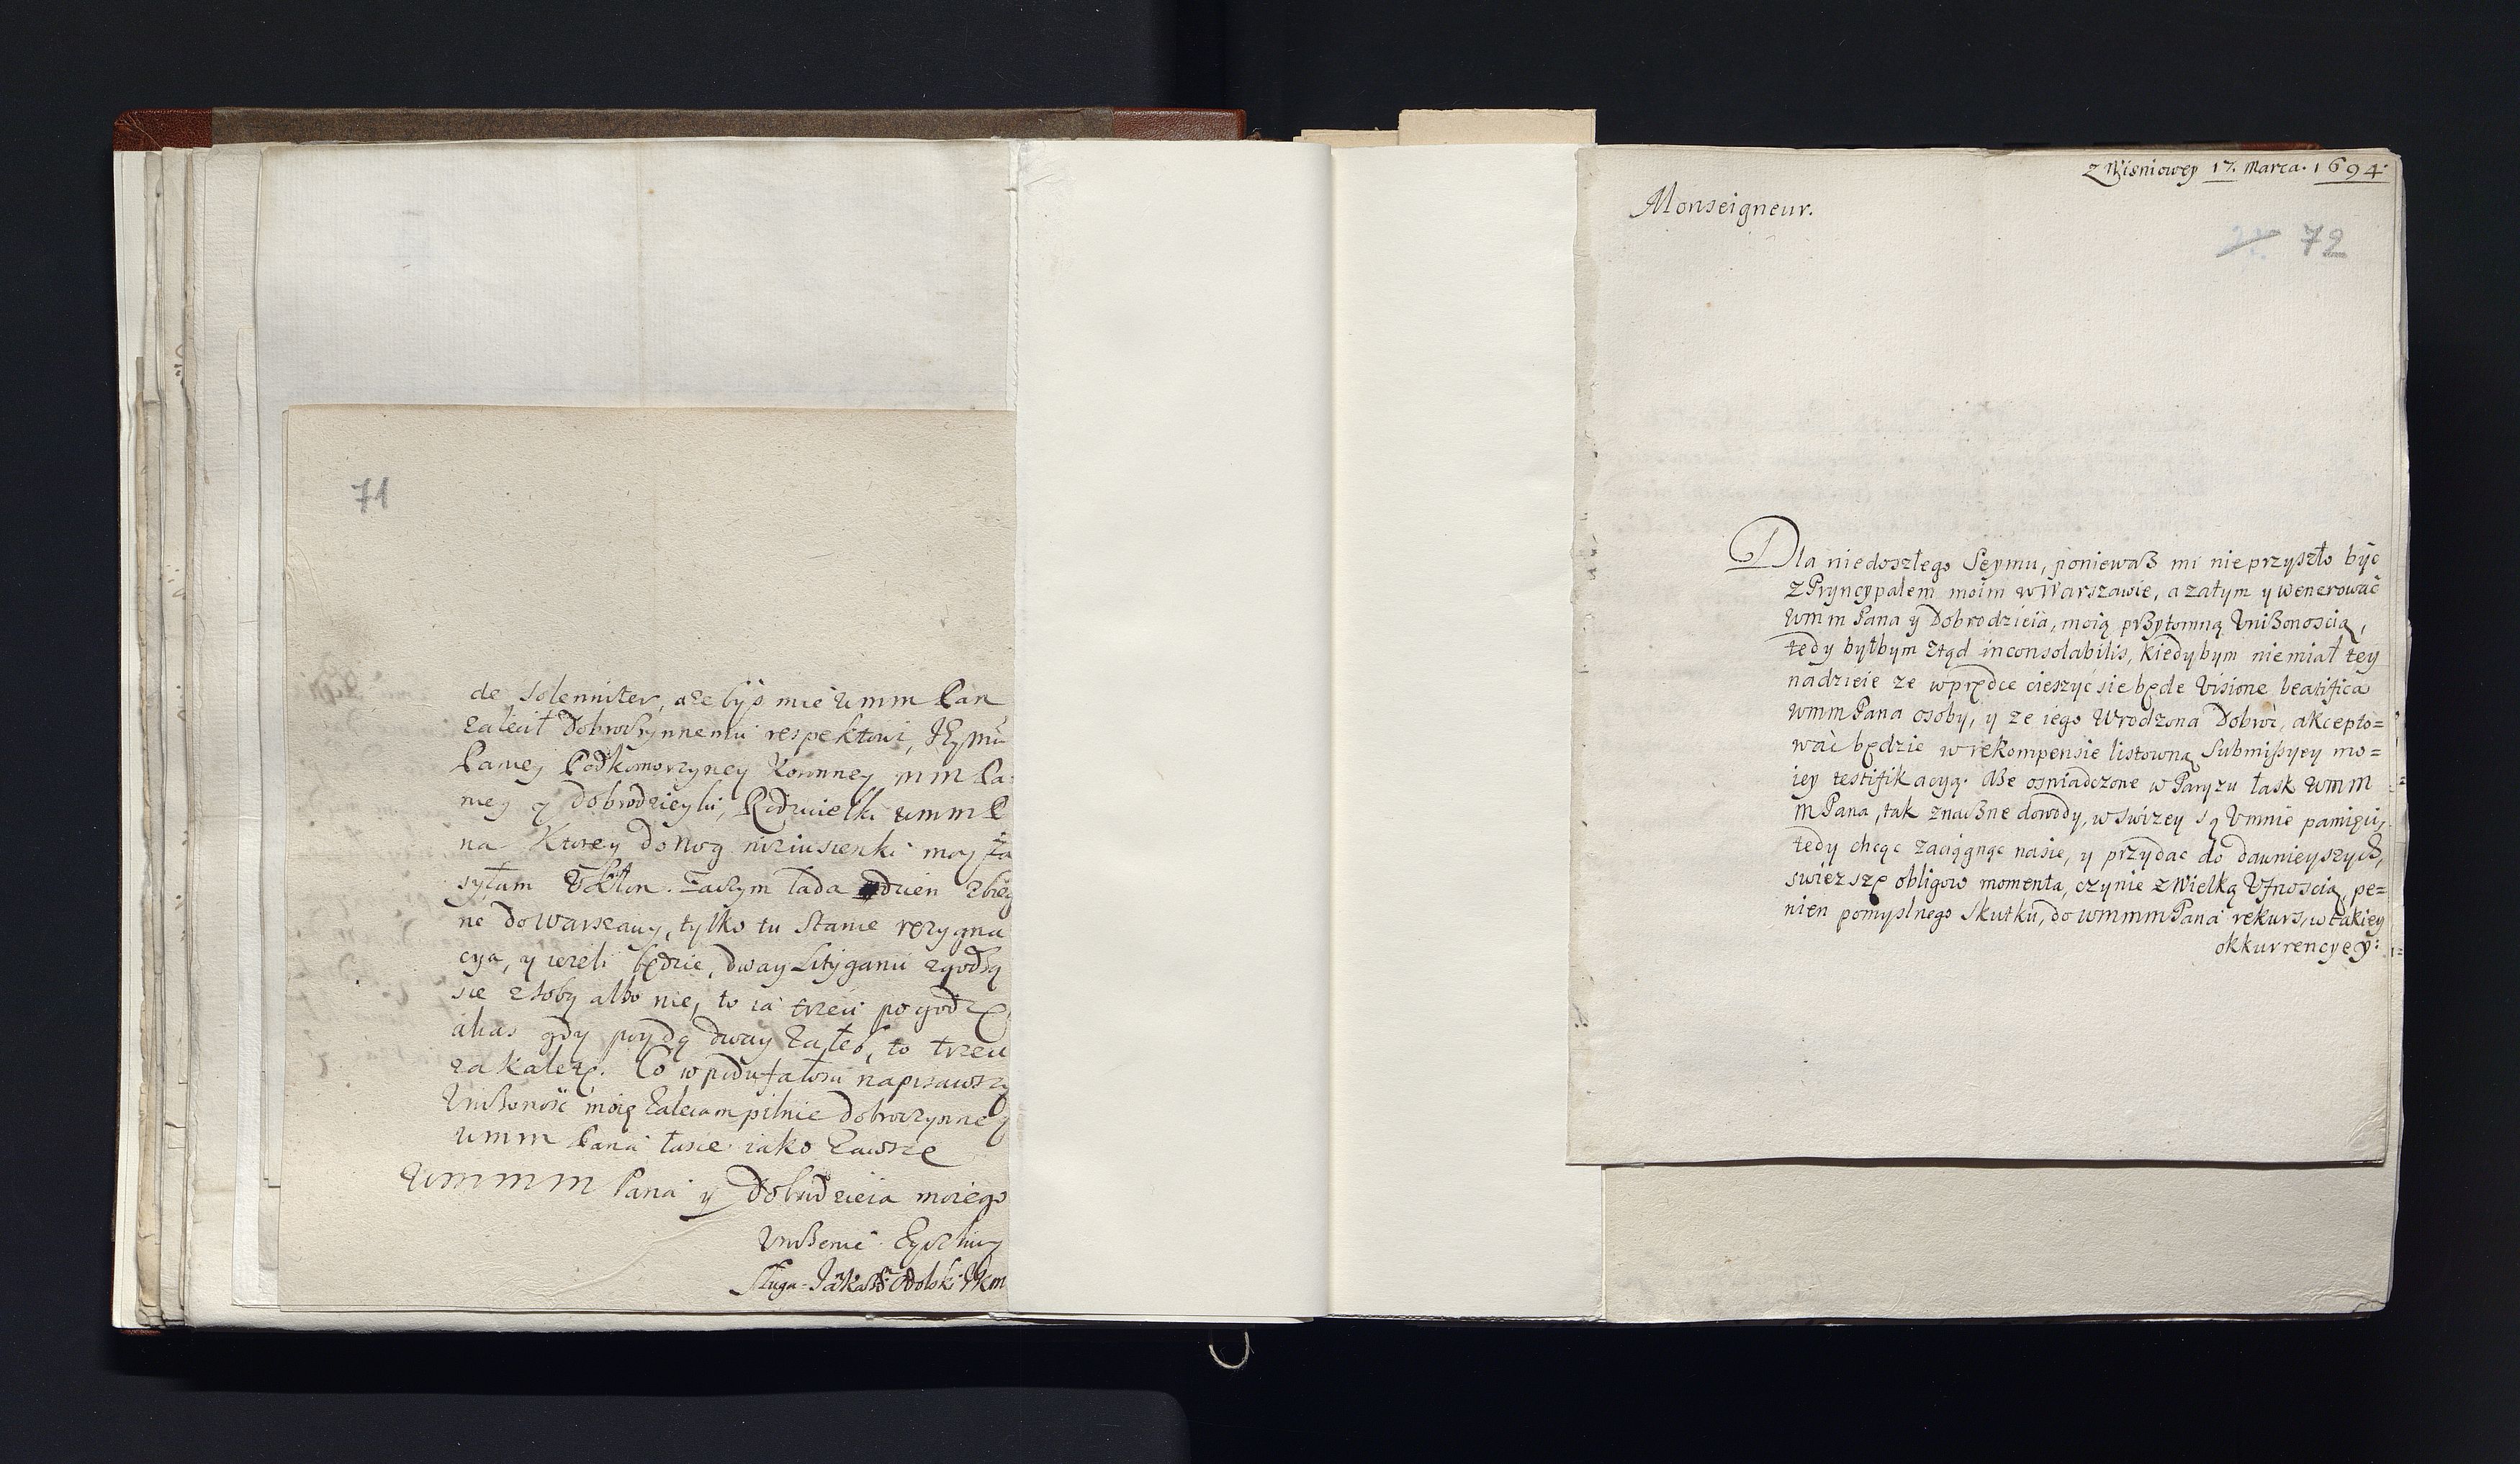 71
de solenniter, ażebyś mie wmm Pan
zalecił Dobroczynnemu respektowi, JEymci
Paniey Podkomorzyney Koronney mm Pa
niey y Dobrodzieyki, Rodzicielki wmm P
na Ktorey do Nog niziusienki moy za
syłam Vkłon. Zaczym lada dzien zbieg
ne do Warszawy, tylko tu stanie rezygna
cya, y iezeli będzie, dway Lityganci zgodzą
sie z sobą albo nie, to ia trzeci pogodzę
alias gdy poydą dway za łeb, to trzeci
za kaletę. Co w poufałosci napisawszy
Vniżoność moię zalecam pilnie dobroczynney
wmm Pana łasce iako zawsze
Wmmm Pana y Dobrodzieia moiego
Vniżenie Zyczliwy
Sługa
z Wisniowey 17. Marca. 1694.
Monseigneur.
72
Dla niedoszłego Seymu, ponieważ mi nie przyszło być
z Pryncypałem moim w Warszawie, a zatym y wenerować
wmm Pana y Dobrodzieia, moią przytomną Vniżonoscią,
tedy byłbym ztąd inconsolabilis, kiedybym niemiał tey
nadzieie ze wprędce cieszyć sie będe Visione beatifica
wmm Pana osoby, y ze iego Wrodzona Dobroć, akcepto=
wać będzie w rekompensie listowną Submissyey mo=
iey testifikacyą. Aże oswiadczone w Paryzu łask wmm
m Pana, tak znaczne dowody, w swizey są Vmnie pamięci,
tedy chcąc zaciągnąc nasie, y przydac do dawnieyszych,
swiezsze obligow momenta, czynie z Wielką Vfnoscią, pe=
nien pomyslnego Skutku, do wmmm Pana rekurs, w takiey
okkurrencyey: